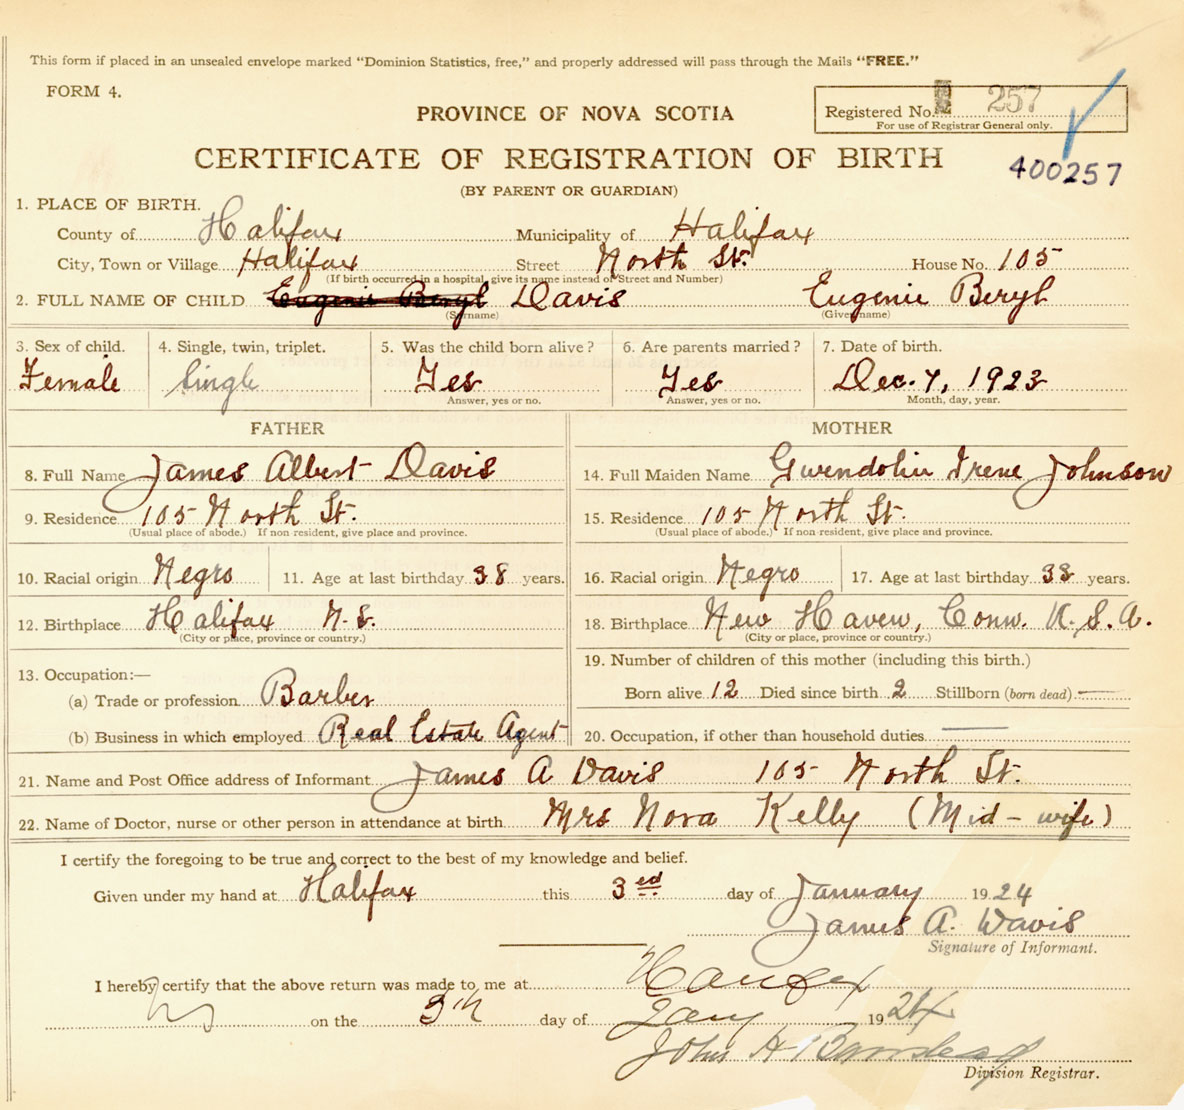 This form if placed in an unsealed envelope marked "Dominion Statistics, free," and properly addressed will pass through the Mails "FREE."
FORM 4.
PROVINCE OF NOVA SCOTIA
Registered No. 257
For use of Registrar General only.
CERTIFICATE OF REGISTRATION OF BIRTH
400257
(BY PARENT OR GUARDIAN)
1. PLACE OF BIRTH.
County of Halifax Municipality of Halifax
City, Town or Village Halifax Street North St. House No. 105
(If birth occurred in a hospital, give its name instead of Street and Number)
2. FULL NAME OF CHILD Eugenie Beryl Davis Eugenie Beryl
(Surname) (Given name)
3. Sex of child. 4. Single, twin, triplet. 5. Was the child born alive? 6. Are parents married? 7. Date of birth.
Female Single Yes Yes Dec. 7, 1923
Answer, yes or no. Answer, yes or no. Month, day, year.
FATHER MOTHER
8. Full Name James Albert Davis 14. Full Maiden Name Gwendolin Irene Johnson
9. Residence 105 North St. 15. Residence 105 North St.
(Usual place of abode.) If non-resident, give place and province. (Usual place of abode.) If non-resident, give place and province.
10. Racial origin Negro 11. Age at last birthday 38 years. 16. Racial origin Negro 17. Age at last birthday 33 years.
12. Birthplace Halifax N.S. 18. Birthplace New Haven, Conn. U.S.A.
(City or place, province or country.) (City or place, province or country.)
13. Occupation:—
(a) Trade or profession Barber
(b) Business in which employed Real Estate Agent
19. Number of children of this mother (including this birth.)
Born alive 12 Died since birth 2 Stillborn (born dead) —
20. Occupation, if other than household duties —
21. Name and Post Office address of Informant James A Davis 105 North St.
22. Name of Doctor, nurse or other person in attendance at birth Mrs Nora Kelly (Mid-wife)
I certify the foregoing to be true and correct to the best of my knowledge and belief.
Given under my hand at Halifax this 3ed day of January 1924
James A. Davis
Signature of Informant.
I hereby certify that the above return was made to me at Halifax
NS on the 3th day of Jany 1924
John H Barnstead
Division Registrar.